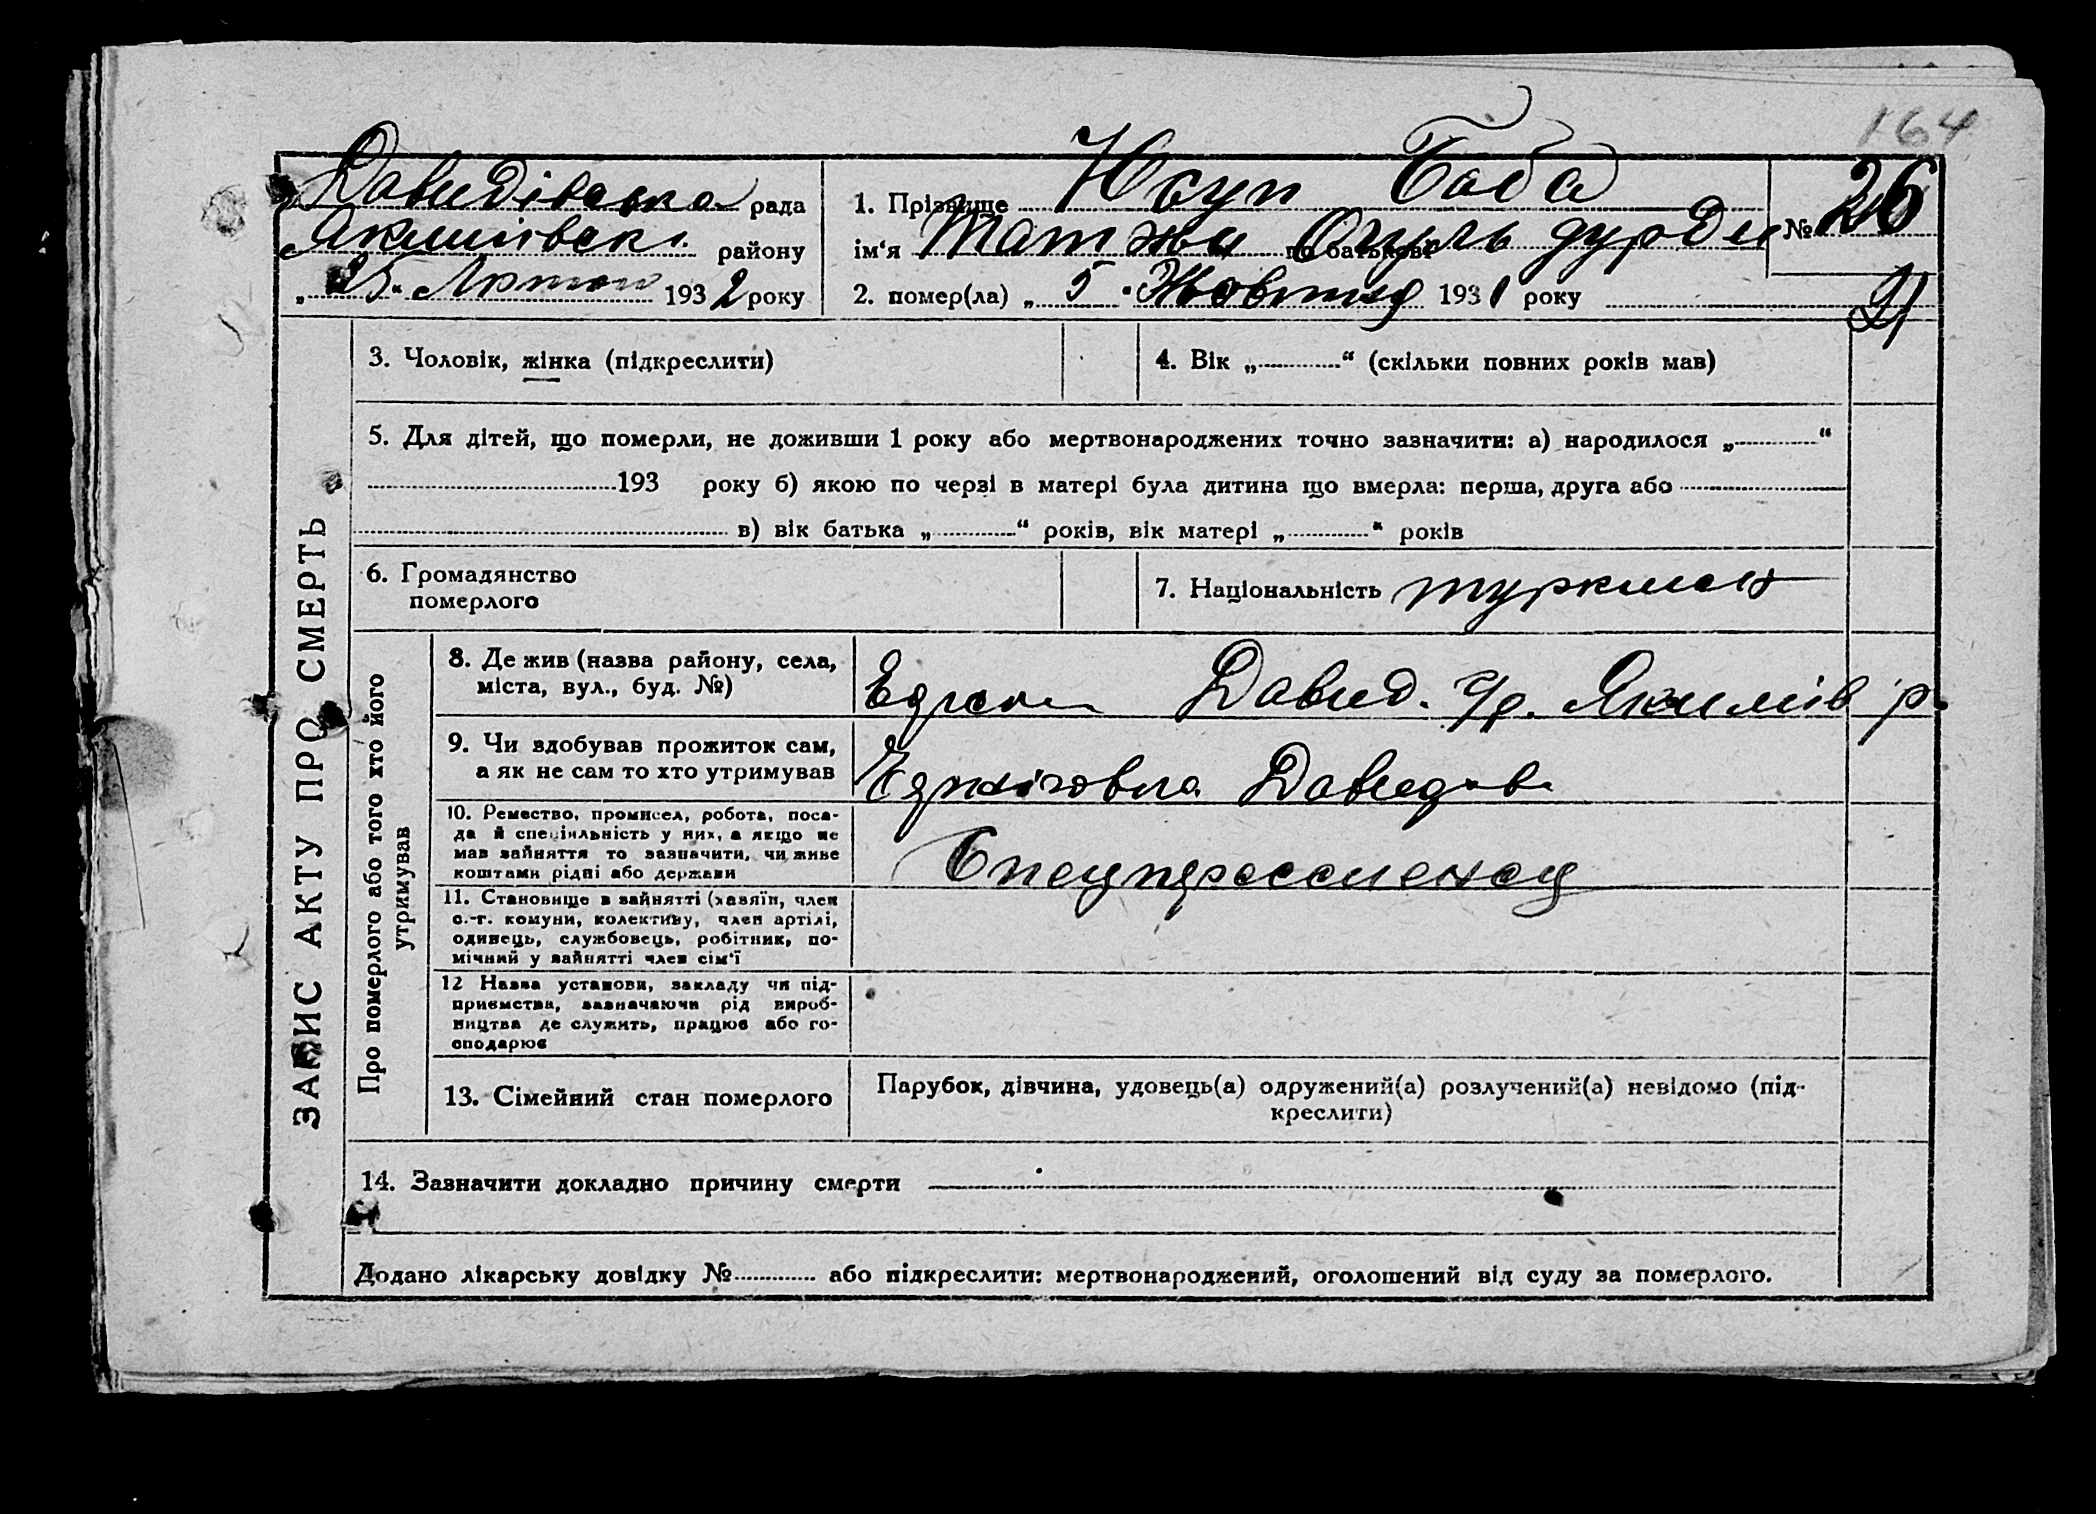 164
Давидівська рада
Якимівськ. району
„ 25 “ Лютого 1932 року
1. Прізвище Юсуп Баба
ім‘я Татжи по батькові Огуль дурди
№ 26
2. помер(ла) „ 5 “ Жовтня 1931 року
ЗАПИС АКТУ ПРО СМЕРТЬ
3. Чоловік, жінка (підкреслити)
4. Вік „ “ (скільки повних років мав)
5. Для дітей, що померли, не доживши 1 року або мертвонароджених точно зазначити: а) народилося „ “
193 року б) якою по черзі в матері була дитина що вмерла: перша, друга або
в) вік батька „ “ років, вік матері „ “ років
6. Громадянство
померлого
7. Національність туркмен
Про померлого або того хто його
утримував
8. Де жив (назва району, села,
міста, вул., буд. №)
Давид. с/р. Якимів р.
9. Чи здобував прожиток сам,
а як не сам то хто утримував
10. Ремество, промисел, робота, поса-
да й спеціяльність у них, а якщо не
мав зайняття то зазначити, чи живе
коштами рідні або держави
Спецпереселенец
11. Становище в зайнятті (хазяїн, член
с.-г. комуни, колективу, член артілі,
одинець, службовець, робітник, по-
мічний у зайнятті член сім‘ї
12 Назва установи, закладу чи під-
приємства, зазначаючи рід вироб-
ництва де служить, працює або го-
сподарює
13. Сімейний стан померлого
Парубок, дівчина, удовець(а) одружений(а) розлучений(а) невідомо (під-
креслити)
14. Зазначити докладно причину смерти
Додано лікарську довідку № або підкреслити: мертвонароджений, оголошений від суду за померлого.